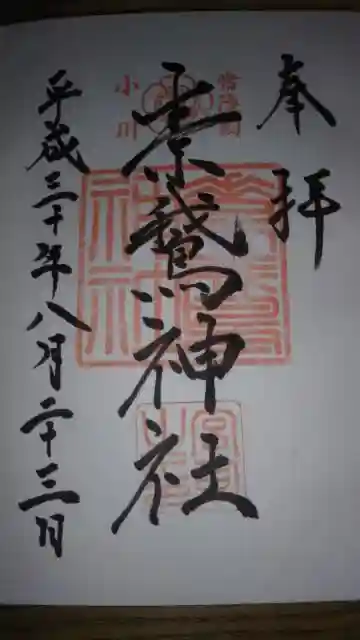 奉拝
常陸國
小川
素鵞神社
平成三十年八月二十三日